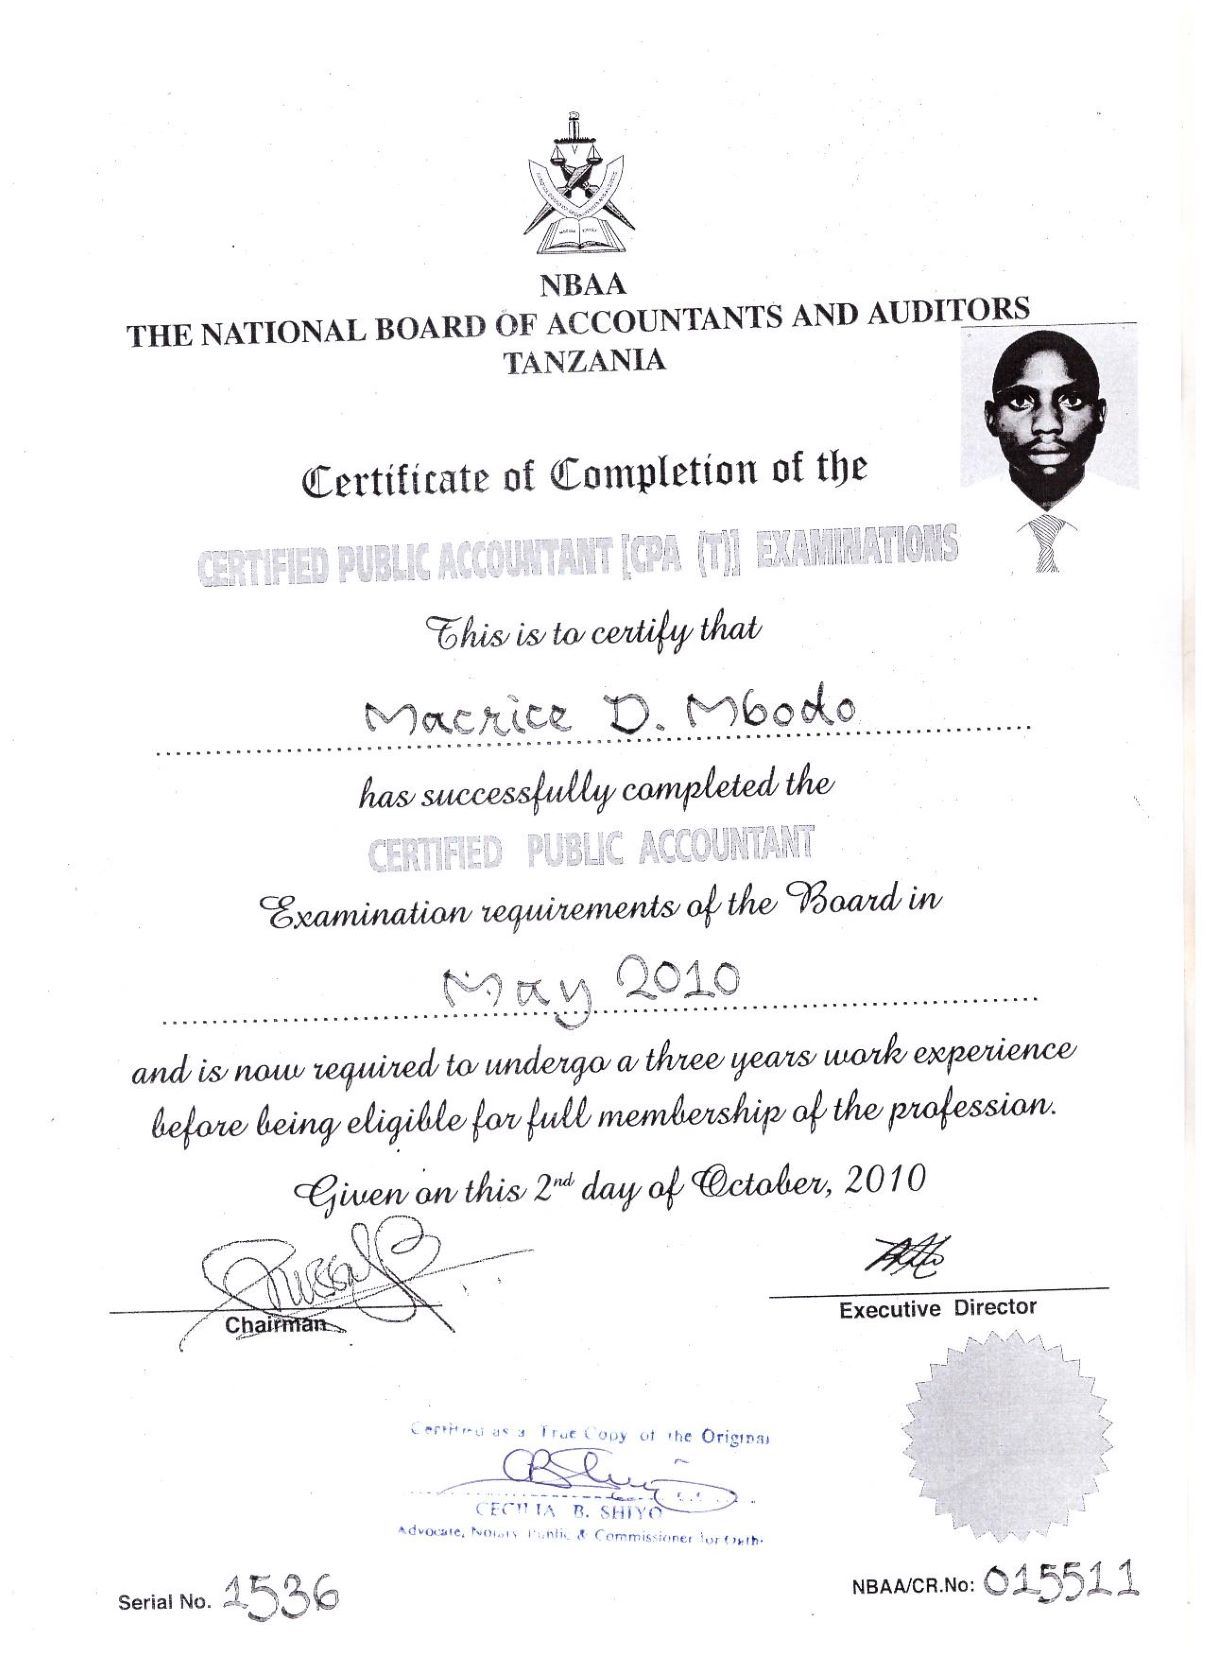 NBAA
THE NATIONAL BOARD OF ACCOUNTANTS AND AUDITORS
TANZANIA
Certificate of Completion of the
CERTIFIED PUBLIC ACCOUNTANT [CPA (T)] EXAMINATIONS
This is to certify that
Macrice D. Mbodo
has successfully completed the
CERTIFIED PUBLIC ACCOUNTANT
Examination requirements of the Board in
May 2010
and is now required to undergo a three years work experience
before being eligible for full membership of the profession.
Given on this 2nd day of October, 2010
Chairman
Executive Director
Certified as a True Copy of the Original
CECILIA B. SHIYO
Advocate, Notary Public & Commissioner for Oath
Serial No. 1536
NBAA/CR.No: 015511